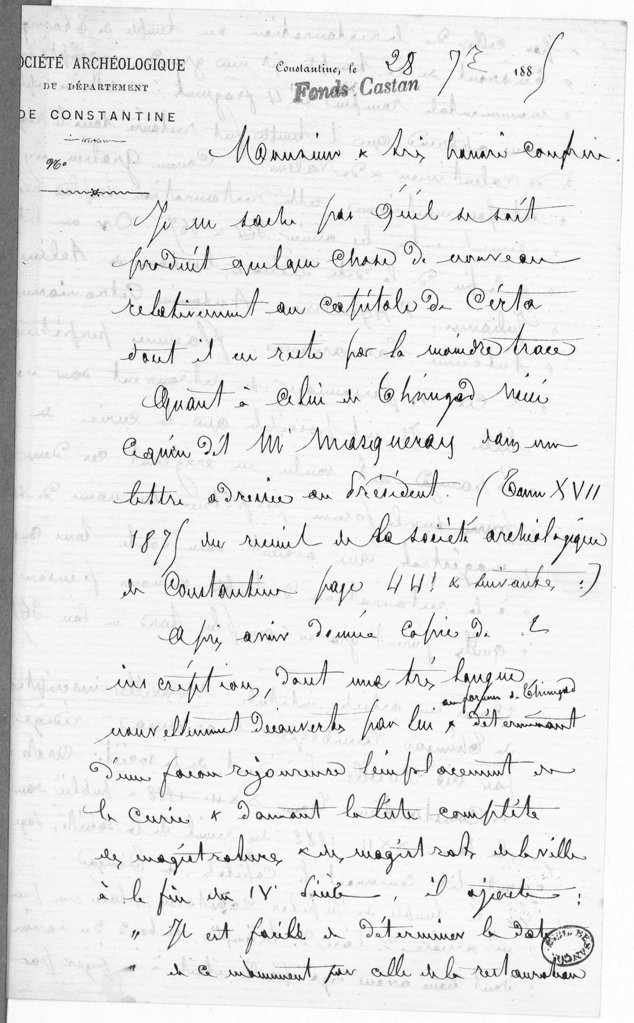 SOCIÉTÉ ARCHÉOLOGIQUE
DU DÉPARTEMENT
DE CONSTANTINE
Constantine, le 28 7bre 1885
Fonds Castan
No
Monsieur & très honoré confrère.
Je ne sache pas qu'il se soit
produit quelque chose de nouveau
relativement au capitole de Cirta
dont il ne reste pas la moindre trace
Quant à celui de Thimgad voici
ce qu'en dit Mr Masqueray dans une
lettre adressée au Président. (Tome XVII
1875 du recueil de la société archéologique
de Constantine page 441 & suivantes :)
Après avoir donné copie de 2
inscriptions, dont une très longue,
au forum de Thimgad
nouvellement découvertes par lui & déterminant
d'une façon rigoureuse l'emplacement de
la curie & donnant la liste complète
des magistratures & des magistrats de la ville
à la fin du IVe siècle, il ajoute :
" Il est facile de déterminer la date
" de ce monument par celle de la restauration